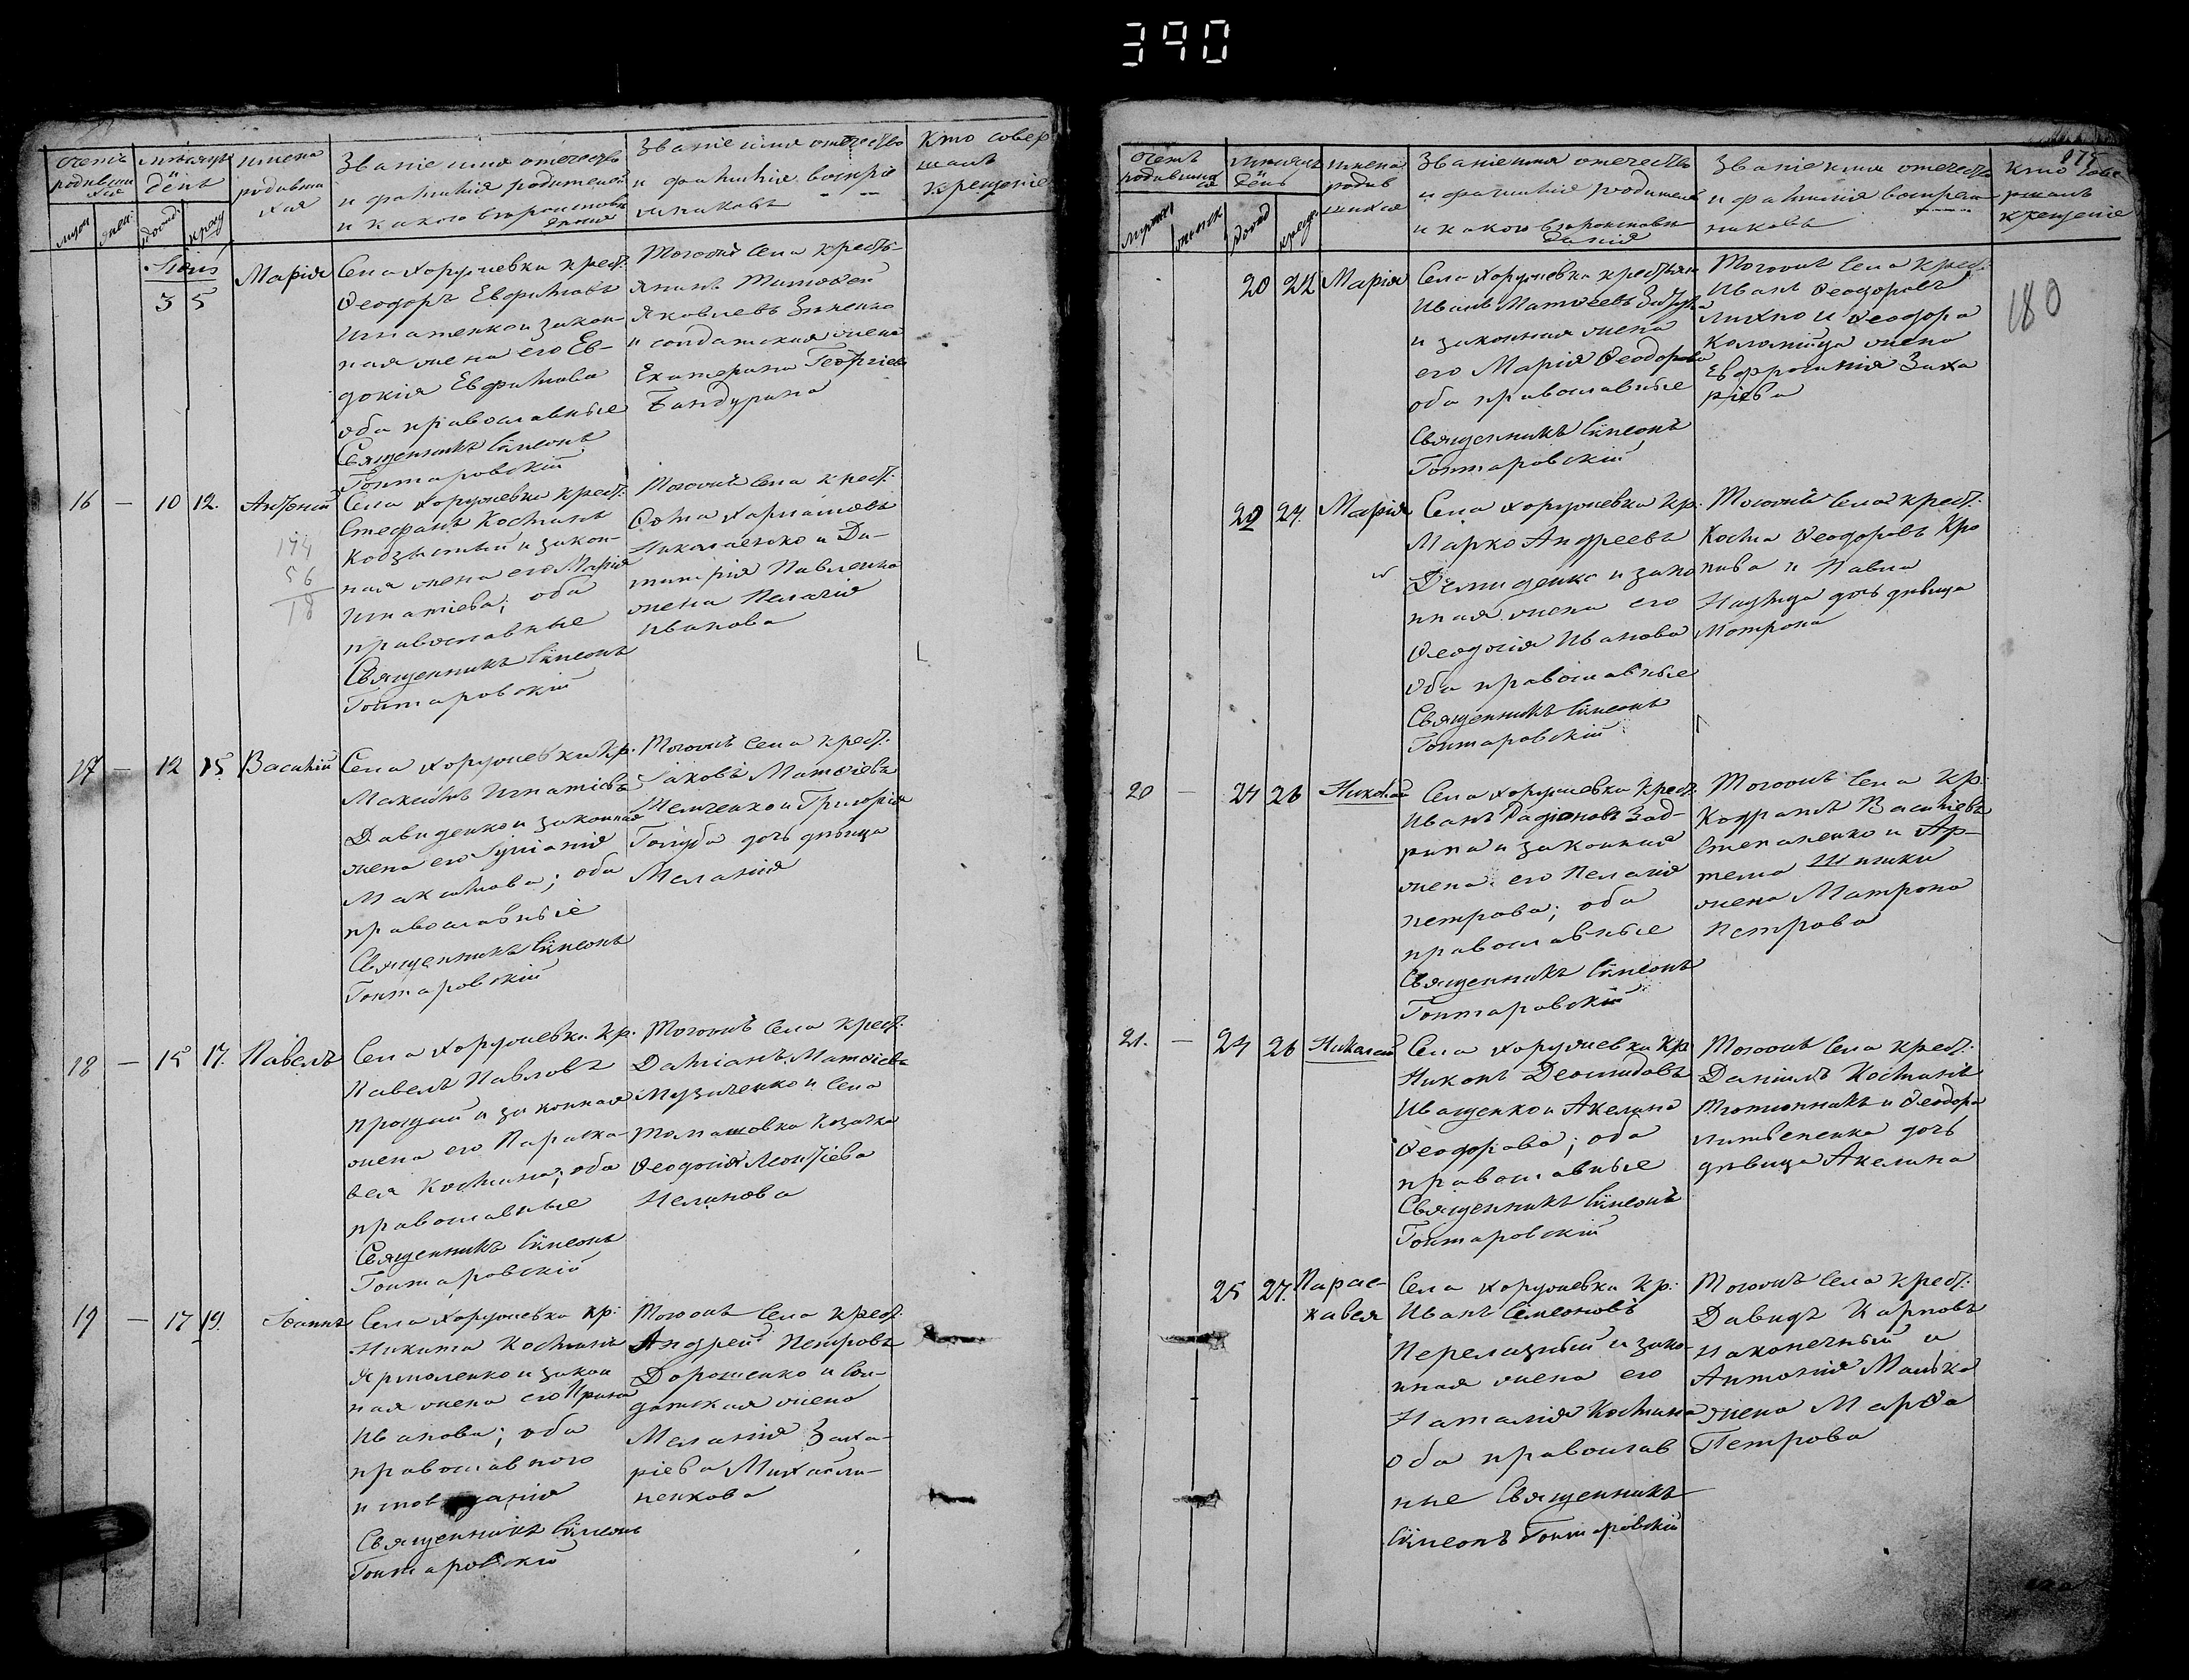 390
Счетъ
родившихся
мѣсяцъ
и
день
имена
родивши
хся
Званіе имя отечество
и фамилія родителей
и какого вѣроисповѣ
данія
Званіе имя отечество
и фамилія воспріе
мниковъ
Кто совер
шалъ
крещеніе
3 5
Марія
Села Хоружевки крест:
Ѳеодоръ Евфимовъ
Игнатенко и закон-
ная жена его Ев-
докія Евфимова
оба православные
Священникъ Сѵмеонъ
Гонтаровскій
Тогожъ села кресть-
янинъ Тимоѳей
Яковлевъ Зинченко
и солдатская жена
Екатерина Георгіева
Бандурина
16 — 10 12.
Антоній
Села Хоружевки крест:
Стефанъ Косминъ
Кобзистый и закон-
ная жена его Марія
Игнатіева; оба
православные
Священникъ Сѵмеонъ
Гонтаровскій
Тогожъ села крест:
Николаенко и Ди-
митрія Павленка
жена Пелагія
Иванова
174
56
18
17 — 12 15
Василій
Села Хоружевки кр:
Максимъ Игнатіевъ
Давиденко и законная
жена его Іуліанія
Максимова; оба
православные
Священникъ Сѵмеонъ
Гонтаровскій
Тогожъ села крест:
Іаковъ Матѳіевъ
Шемченко и Григорія
Голуба дочь дѣвица
Меланія
18 — 15 17.
Павелъ
Села Хоружевки кр:
Павелъ Павловъ
Процай и законная
жена его Параске-
вея Космина; оба
православные
Священникъ Сѵмеонъ
Гонтаровскій
Тогожъ села крест:
Даміанъ Матѳіевъ
Музыченко и села
Томашовки козачка
Ѳеодосія Леонтіева
Нелинова
19 — 17 19.
Іоаннъ
Села Хоружевки кр:
Никита Косминъ
Ярмоленко и закон
ная жена его Ирина
Иванова; оба
православного
исповѣданія
Священникъ Сѵмеонъ
Гонтаровскій
Тогожъ села крест:
Андрей Петровъ
Дорошенко и Сол-
датская жена
Меланія Заха-
ріева Михайли-
ченкова
Счетъ
родившихся
мѣсяцъ
и
день
имена
родив
шихся
Званіе имя отечество
и фамилія родителей
и какого вѣроисповѣ
данія
Званіе имя отечество
и фамилія воспріем
никовъ
Кто сове
ршалъ
крещеніе
180
20 22
Марія
Села Хоружевки крестьян
Иванъ Матѳеевъ
и законная жена
его Марія Ѳеодорова
оба православные
Священникъ Сѵмеонъ
Гонтаровскій
Тогожъ села крест:
Иванъ Ѳеодоровъ
Лихно и Ѳеодора
Коломійца жена
Евфросинія Заха
ріева
20 24.
Марія
Села Хоружевки кр:
Марко Андреевъ
Демиденко и зако
нная жена его
Ѳеодосія Иванова
Оба православные
Священникъ Сѵмеонъ
Гонтаровскій
Тогожъ села крест:
Косма Ѳеодоровъ Кро
пива и Павла
дочь дѣвица
Матрона
20 — 24 26
Николай
Села Хоружевки крест:
Иванъ Радіоновъ Зад-
рипа и законная
жена его Пелагія
Петрова; оба
православные
Священникъ Сѵмеонъ
Гонтаровскій
Тогожъ села кр:
Кодратъ Васильевъ
Степаненко и Ар-
тема Шпички
жена Матрона
Петрова
21. — 24 26
Николай
Села Хоружевки кр
Никонъ Деомидовъ
Иващенко и Акелина
Ѳеодорова; оба
православные
Священникъ Сѵмеонъ
Гонтаровскій
Тогожъ села крест:
Даніилъ Косминъ
Тютюнникъ и Ѳеодора
Литвененка дочь
дѣвица Акелина
25 27.
Парас-
кавея
Села Хоружевки кр:
Иванъ Сѵмеоновъ
Перелазный и зако-
нная жена его
Наталія Космина
Оба православ
ные Священникъ
Сѵмеонъ Гонтаровскій
Тогожъ села крест:
Давидъ Карповъ
Наконечный и
Антонія Малька
жена Марѳа
Петрова